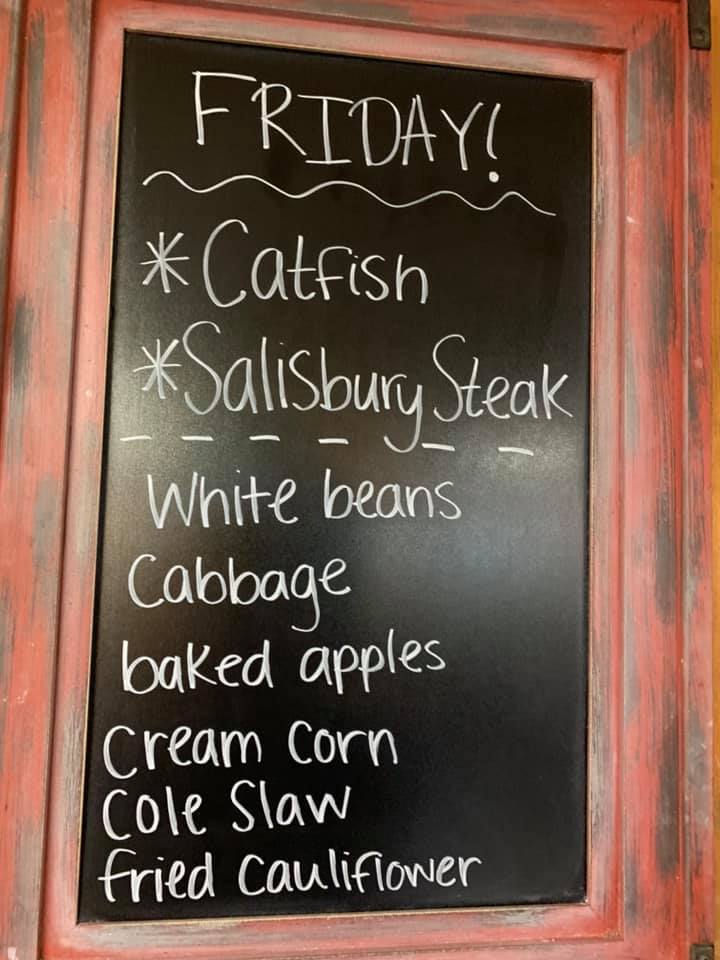 FRIDAY!
*Catfish
*Salisbury Steak
White beans
Cabbage
baked apples
Cream Corn
Cole Slaw
fried Cauliflower